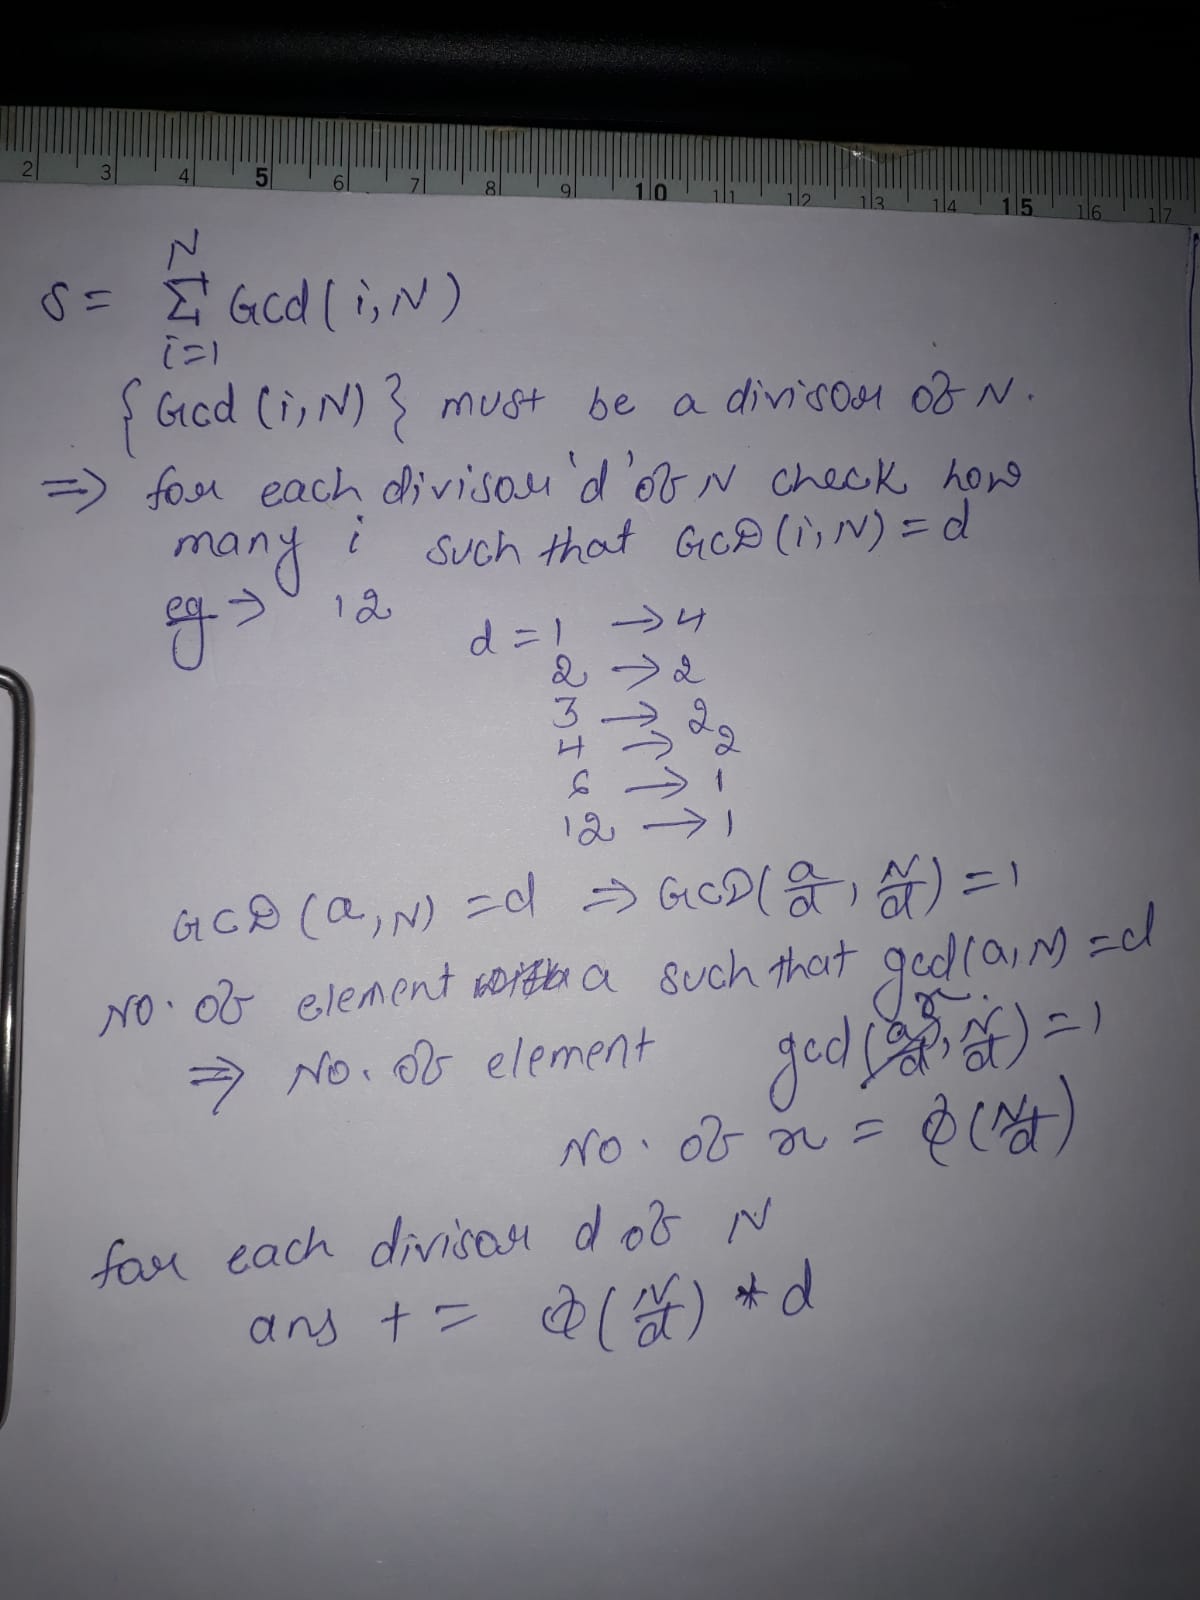 2 3 4 5 6 7 8 9 10 11 12 13 14 15 16 17
S = N Σ i=1 Gcd(i, N)
{Gcd (i, N)} must be a divisor of N.
⇒ for each divisor 'd' of N check how
many i such that GCD(i, N) = d
eg → 12
d = 1 → 4
2 → 2
3 → 2
4 → 2
6 → 1
12 → 1
GCD(a, N) = d ⇒ GCD(a/d, N/d) = 1
No. of element a such that gcd(a, N) = d
⇒ No. of element gcd(x, N/d) = 1
No. of x = Φ(N/d)
for each divisor d of N
ans += Φ(N/d) * d